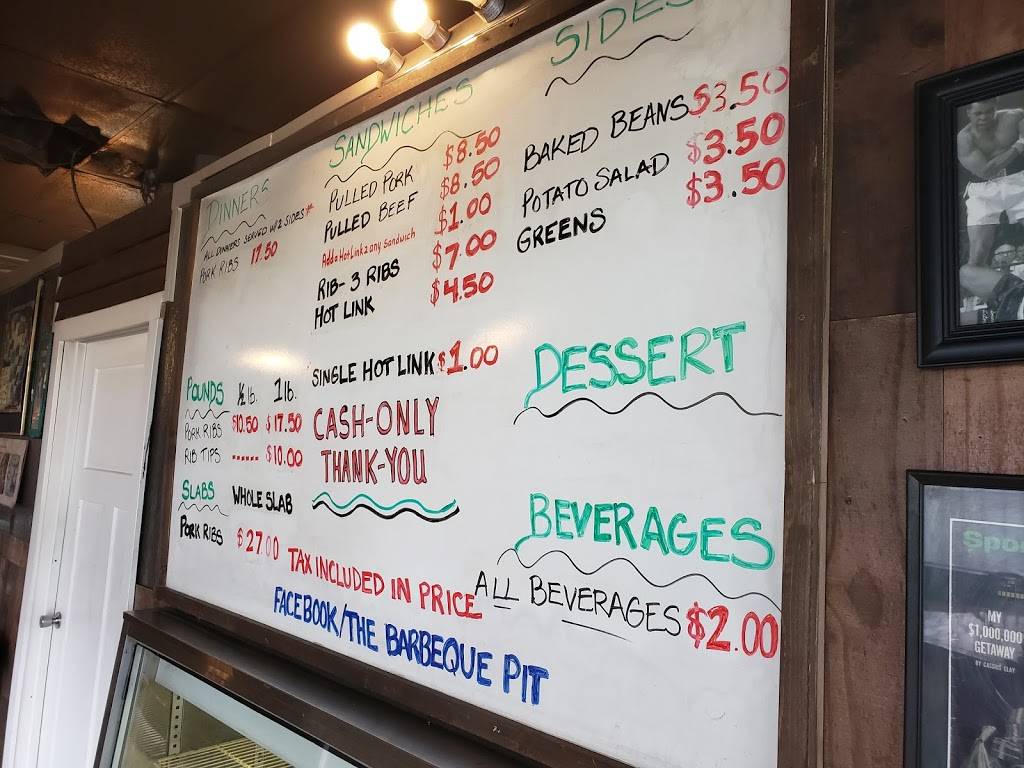 DINNERS
ALL DINNERS SERVED W/2 SIDES*
PORK RIBS 17.50
SANDWICHES
PULLED PORK $8.50
PULLED BEEF $8.50
Add a Hot Link 2 any Sandwich $1.00
RIB- 3 RIBS $7.00
HOT LINK $4.50
SINGLE HOT LINK $1.00
CASH-ONLY
THANK-YOU
POUNDS ½ lb. 1 lb.
PORK RIBS $10.50 $17.50
RIB TIPS ------ $10.00
SLABS WHOLE SLAB
PORK RIBS $27.00
TAX INCLUDED IN PRICE
FACEBOOK/THE BARBEQUE PIT
SIDES
BAKED BEANS $3.50
POTATO SALAD $3.50
GREENS $3.50
DESSERT
BEVERAGES
ALL BEVERAGES $2.00
MY
$1,000,000
GETAWAY
BY CASSIUS CLAY